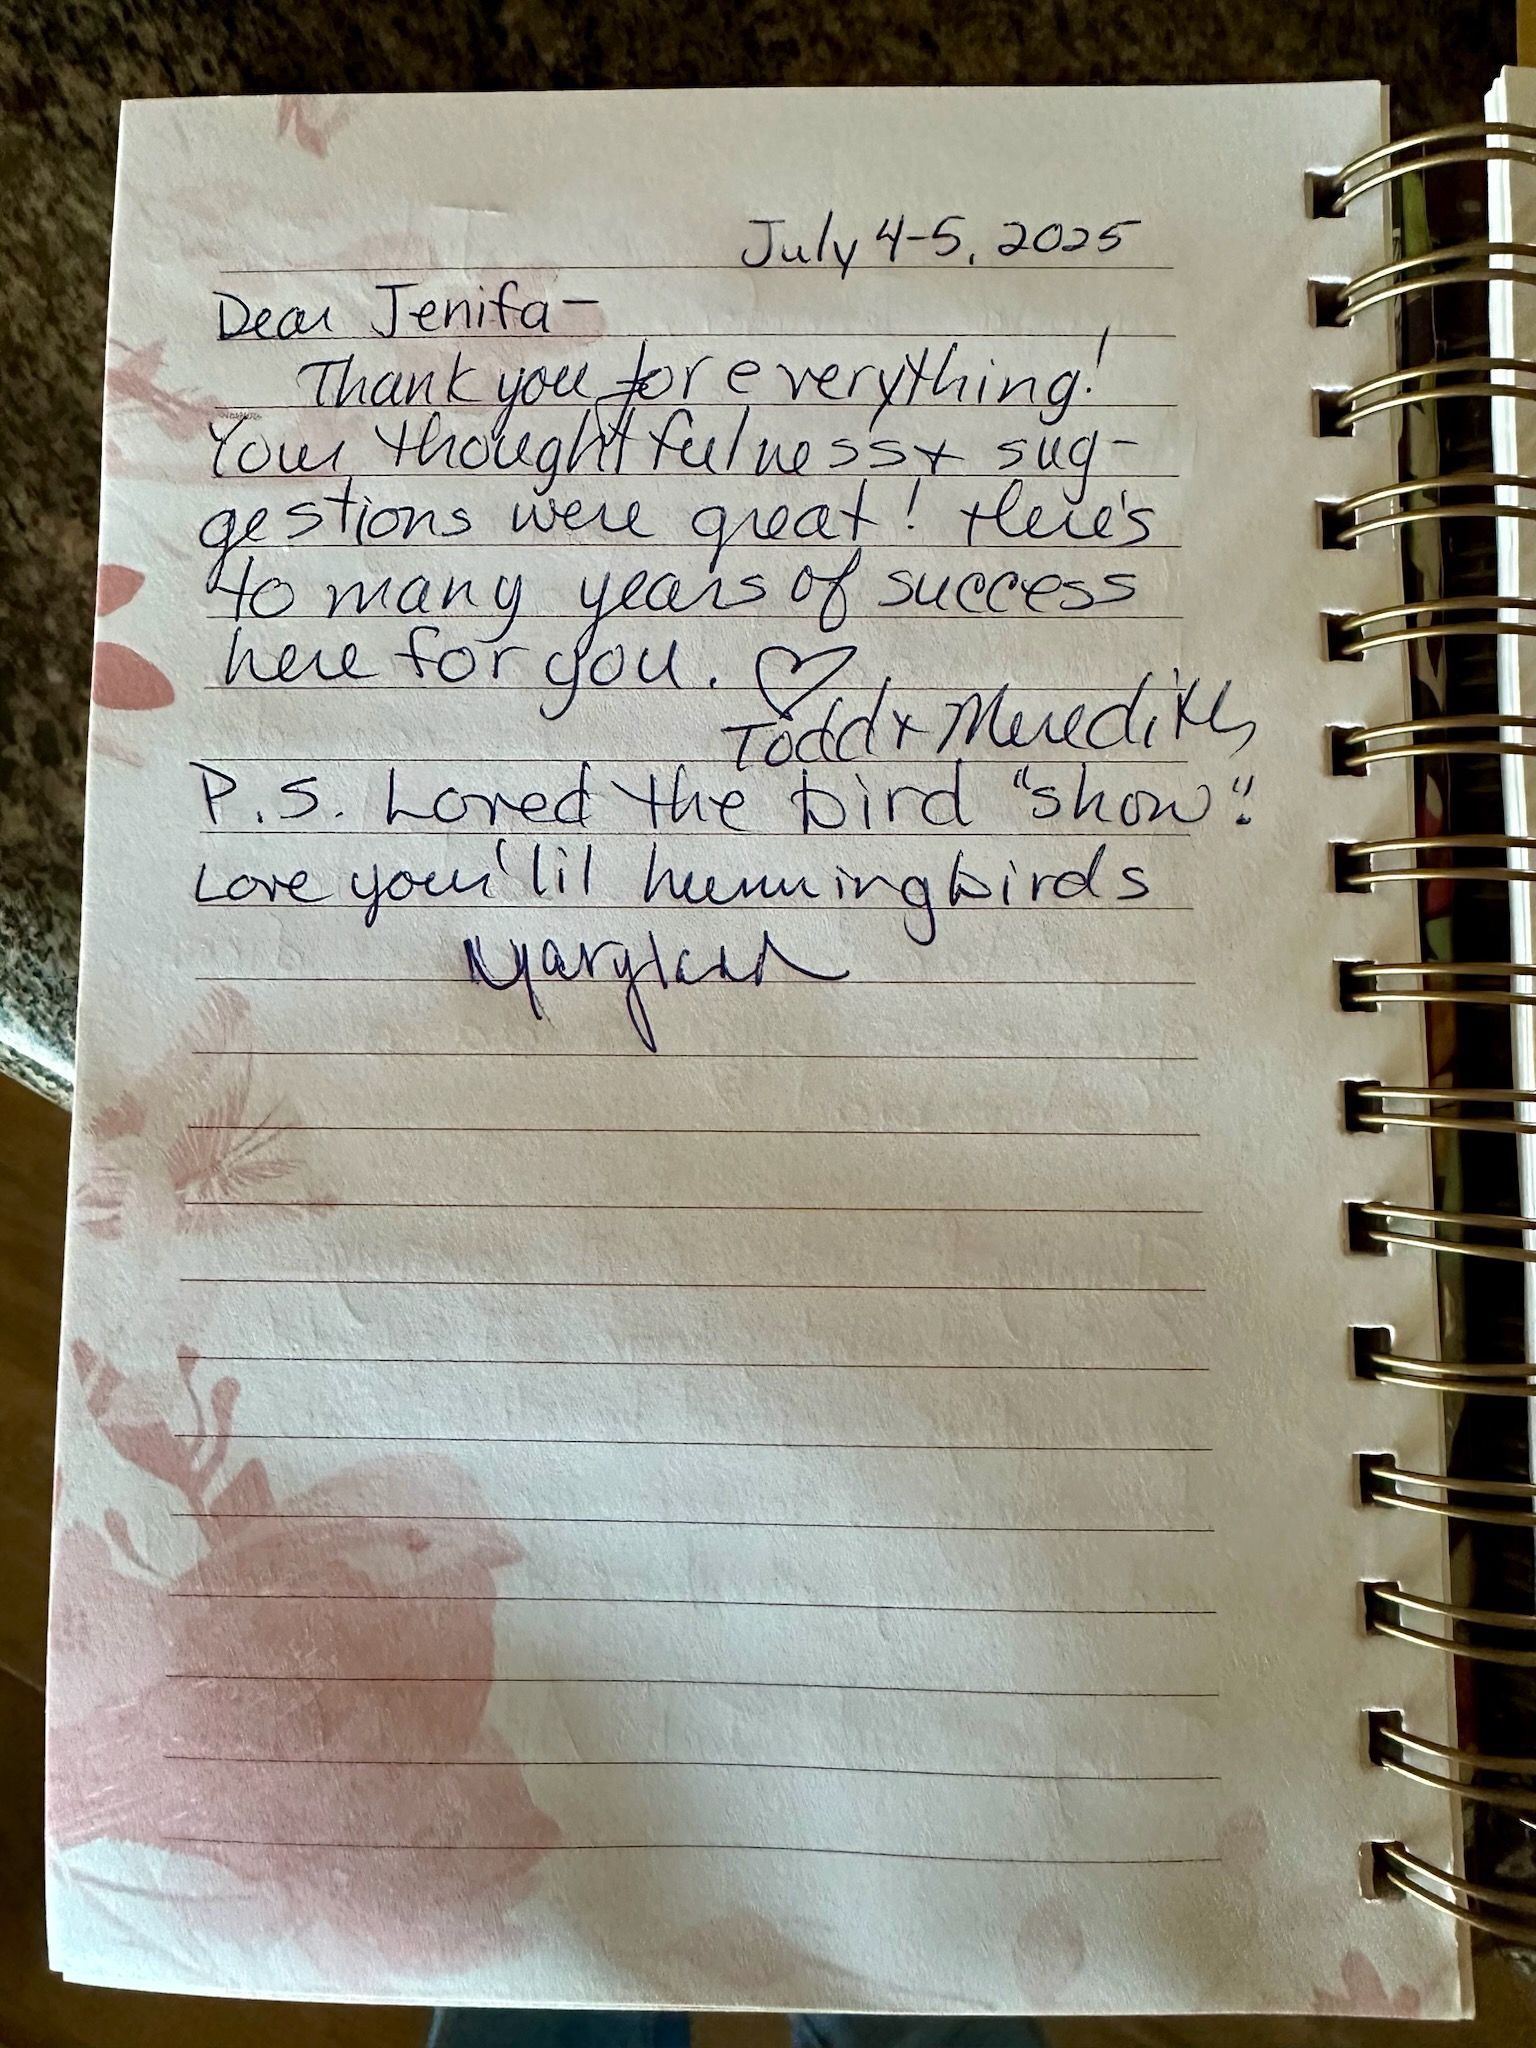 July 4-5, 2025
Dear Jenifa-
Thank you for everything!
Your thoughtfulness & sug-
gestions were great! Here's
to many years of success
here for you. ♡
Todd & Meredith
P.S. Loved the bird "show"!
Love your 'lil hummingbirds
Maryland